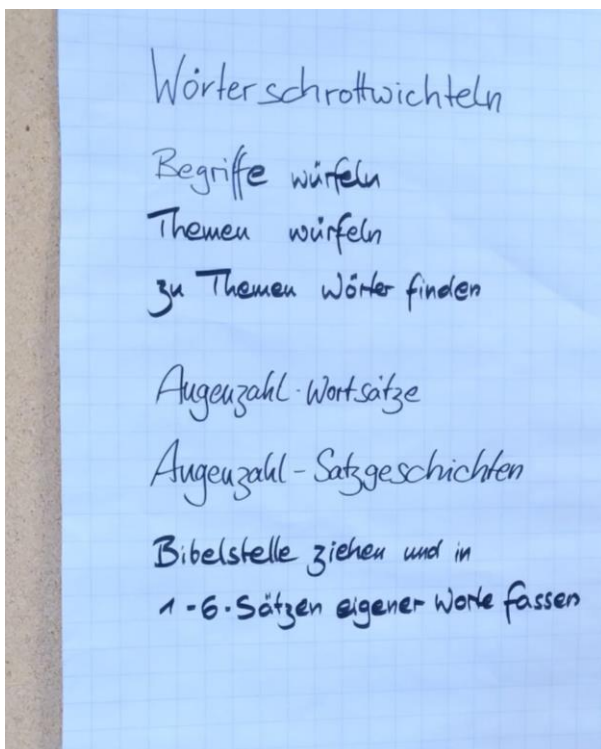 Wörterschrottwichteln
Begriffe würfeln
Themen würfeln
zu Themen Wörter finden
Augenzahl-Wortsätze
Augenzahl-Satzgeschichten
Bibelstelle ziehen und in
1-6-Sätzen eigener Worte fassen